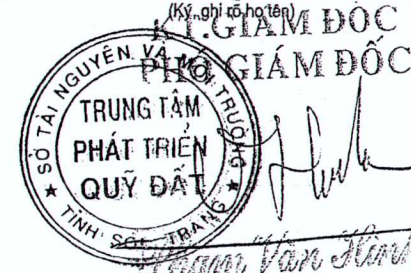 (Ký, ghi rõ họ tên)
KT.GIÁM ĐỐC
PHÓ GIÁM ĐỐC
SỞ TÀI NGUYÊN VÀ MÔI TRƯỜNG
TRUNG TÂM
PHÁT TRIỂN
QUỸ ĐẤT
★ TỈNH SÓC TRĂNG ★
Phạm Văn